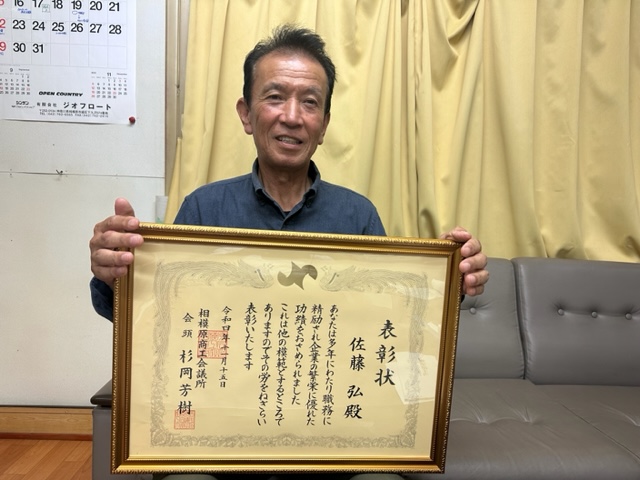 16 17 18 19 20 21
23 24 25 26 27 28
30 31
9
11
OPEN COUNTRY
有限会社 ジオフロート
表彰状
佐藤 弘殿
あなたは多年にわたり職務に
精励され企業の繁栄に優れた
功績をおさめられました
これは他の模範とするところで
ありますのでその労をねぎらい
表彰いたします
令和四年十一月十五日
相模原商工会議所
会頭 杉岡芳樹